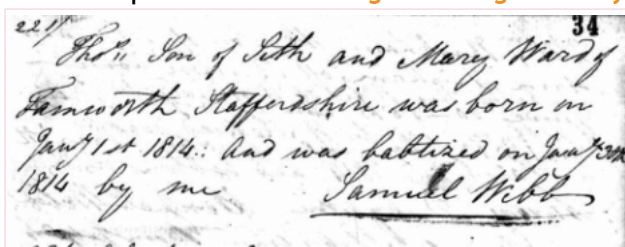 34
Thos. Son of Seth and Mary Ward of
Tamworth Staffordshire was born on
Jany 1st 1814: and was babtized on Jany 30th
1814 by me Samuel Webb